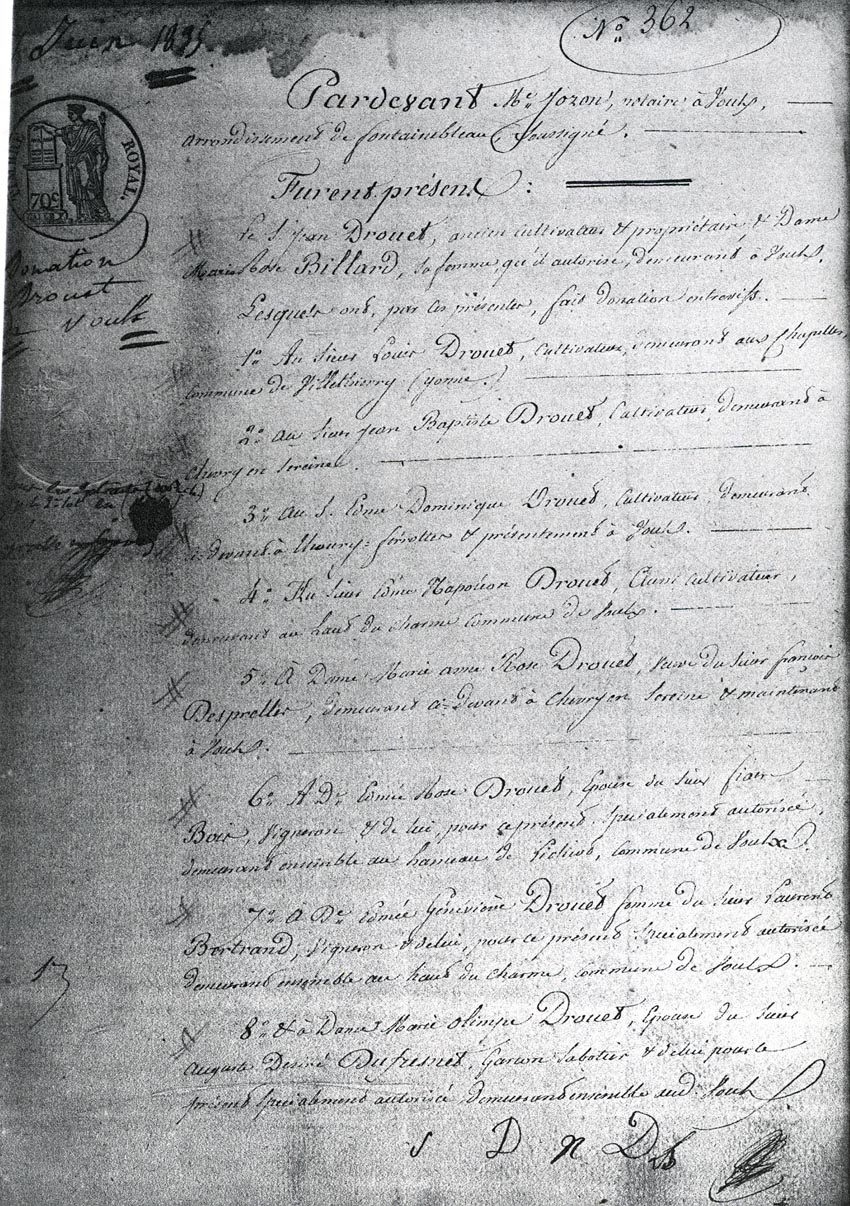 Juin 1835
No. 362
Pardevant Me. Jozon, notaire à Voulx,
arrondissement de fontainebleau, soussigné.
Furent présens :
ROYAL.
70c
Donation
Drouet
Voulx
Le S. Jean Drouet, ancien cultivateur et propriétaire, et Dame
Marie Rose Billard, sa femme, qu'il autorise, demeurant à Voulx.
Lesquels ont, par ces présentes, fait donation entrevifs.
1o. Au sieur Louis Drouet, Cultivateur, demeurant aux Chapelles,
commune de Villethierry (yonne.)
2o. au sieur Jean Baptiste Drouet, Cultivateur, demeurant à
Chevry en Sereine.
3o. Au S. Edme Dominique Drouet, Cultivateur, demeurant
ci-devant à thoury-ferottes et présentement à Voulx.
4o. Au sieur Edme Napoléon Drouet, aussi cultivateur,
demeurant au haut du charme commune de Voulx.
5o. À Dame Marie anne Rose Drouet, veuve du sieur françois
Desprelles, demeurant ci-devant à Chevry en Sereine et maintenant
à Voulx.
6o. A De. Edmée Rose Drouet, Epouse du sieur fiacre
Bois, vigneron et de lui, pour ce présent, specialement autorisée,
demeurant ensemble au hameau de, commune de Voulx.
7o. A De. Edmée Géneviève Drouet femme du sieur Laurent
Bertrand, vigneron et de lui, pour ce présent specialement autorisée
demeurant ensemble au haut du charme, commune de Voulx.
8o. et à Dame Marie olimpe Drouet, Epouse du sieur
Auguste Desiré Dufresnet, Garçon Sabotier et de lui pour ce
présent specialement autorisée demeurant ensemble aud. Voulx
13
S D n D